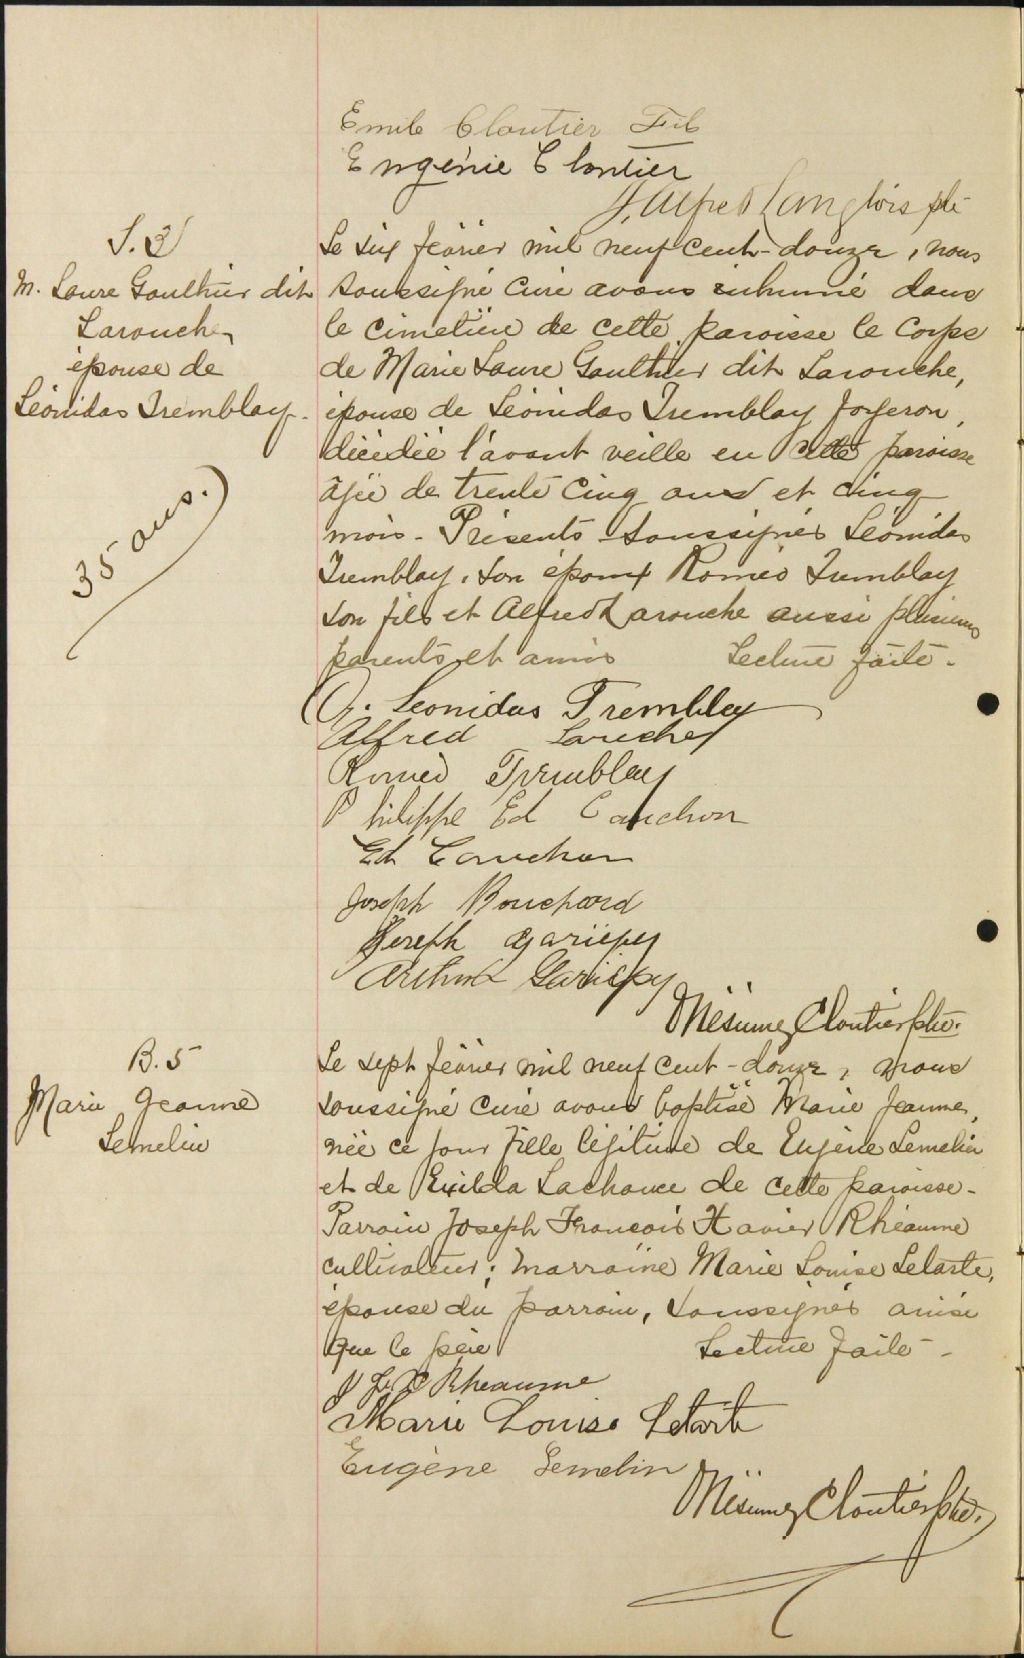 Emile Cloutier Fils
Eugénie Cloutier
J. Alfred Langlois ptr
S. 3
M. Laure Gaulthier dit
Larouche,
épouse de
Léonidas Tremblay.
35 ans.
Le six février mil neuf cent-douze, nous
soussigné curé avons inhumé dans
le cimetière de cette paroisse le corps
de Marie Laure Gaulthier dit Larouche,
épouse de Léonidas Tremblay forgeron,
décédée l'avant veille en cette paroisse
âgée de trente cinq ans et cinq
mois. Présents soussignés Léonidas
Tremblay, son époux Roméo Tremblay
son fils et Alfred Larouche aussi plusieurs
parents et amis Lecture faite.
J. Leonidas Tremblay
Alfred Laruche
Roméo Tremblay
Philippe Ed Cauchon
Ed Cauchon
Joseph Bouchard
Joseph Gariepy
Arthur Gariepy
Cloutier ptre.
B. 5
Marie Jeanne
Lemelin
Le sept février mil neuf cent-douze, nous
soussigné curé avons baptisé Marie Jeanne,
née ce jour fille légitime de Eugène Lemelin
et de Exilda Lachance de cette paroisse.
Parrain Joseph François Xavier Rhéaume
cultivateur; marraine Marie Louise Letarte,
épouse du parrain, soussignés ainsi
que le père Lecture faite.
J F X Rheaume
Marie Louise Letarte
Eugène Lemelin
Cloutier ptre.